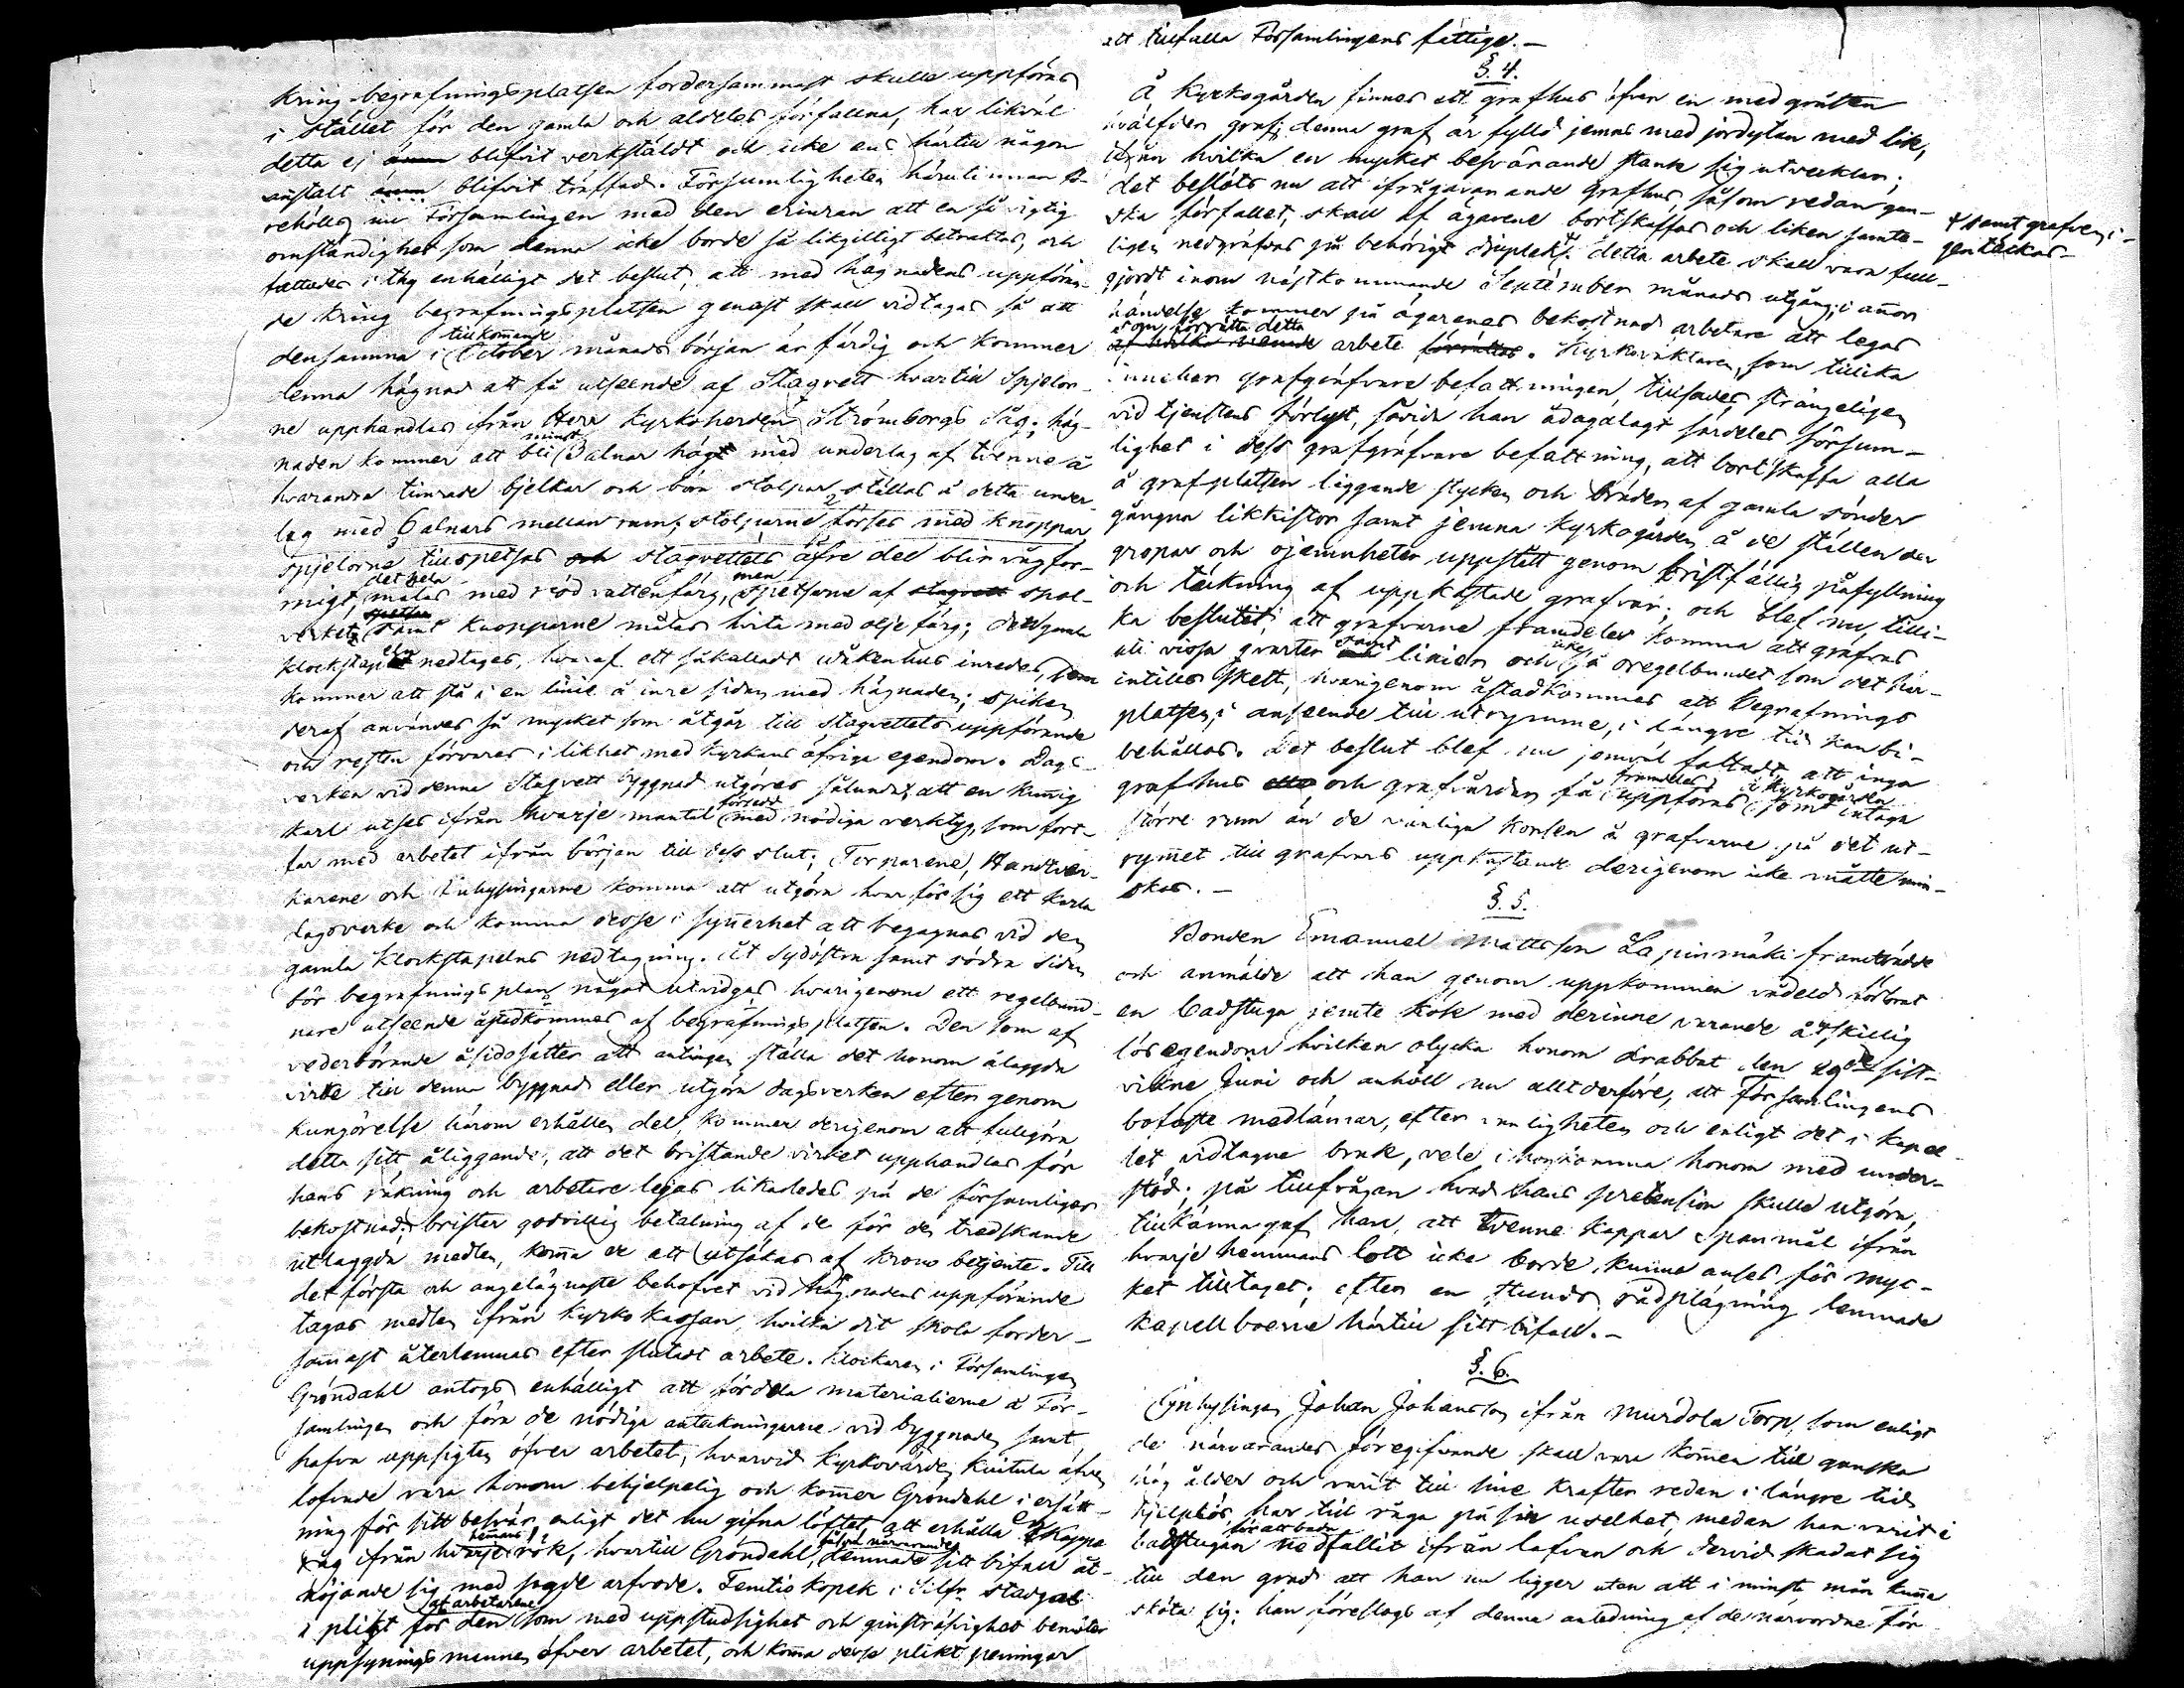 kring begrafningsplatsen fordersammast skulle uppföras
i stället för den gamla och aldeles förfallna, har likväl
detta ej ännu blifvit verkstäldt och icke ens härtill någon
anstalt ännu blifvit träffad. Försumligheten härutinnan
rehölls nu Församlingen med den erinran att en så vigtig
omständighet som denna icke borde så likgilligt betraktas, och
fattades i thy enhälligt det beslut, att med hägnadens uppföran-
de kring begrafningsplatsen genast skall vidtagas så att
tillkom̄ande
densamma i October månads början är färdig och kommer
denna hägnad att få utseende af Stagvett hvartill Spjelor-
ne upphandlas ifrån Herr Kyrkoherden Strömborgs Såg; häg-
minst
naden kommer att bli 3 alnar högt med underlag af tvenne å
hvarandra timrade bjelkar och böra stolpar ställas å detta under-
lag med 6 alnars mellan rum; stolparne förses med knoppar
spjelorna tillspetsas och stagvettets öfre del blir vågfor-
det hela men
migt, målas med röd vattenfärg, spetsarne af stagvett spol-
spetsar
verkets samt knopparne målas hvita med olje färg; den gamla
klockstapeln nedtages, hvaraf ett såkalladt wåkenhus inredes, som
kommer att stå i en linie å inre sidan med hägnaden; spiken
deraf användes så mycket som åtgår till stagvettets uppförande
och resten förvares i likhet med kyrkans öfriga egendom. Dags-
verken vid denna Stagvett byggnad utgöres sålunda, att en kun̄ig
försedd
karl utses ifrån hvarje mantal med nödiga verktyg, som fort-
far med arbetet ifrån början till dess slut; Torparene, Handtver-
karene och Inhysingarne komma att utgöra hvar för sig ett karla
dagsverke och komma desse i syn̄erhet att begagnas vid den
gamla klockstapelns nedtagning. Åt sydöstra samt södra sidan
bör begrafnings plan något utvidgas hvarigenom ett regelbund-
nare utseende åstadkommes af begrafningsplatsen. Den som af
vederbörande åsidosätter att antingen ställa det honom ålaggda
virke till denna byggnad eller utgöra dagsverken efter genom
kungörelse härom erhållen del, kommer derigenom att fullgöra
detta sitt åliggande, att det bristande virket upphandlas för
hans räkning och arbetare lejas likaledes på de försumliges
bekostnad; brister godvillig betalning af de för de tredskande
utlaggda medlen, kom̄a de att utsökas af krono betjente. Till
det första och angelägnaste behofvet vid hägnadens uppförande
tagas medlen ifrån kyrko kassan, hvilka dit skola forder-
sam̄ast återlemnas efter slutadt arbete. Klockaren i Församlingen
Gröndahl antogs enhälligt att fördela materialierne å För-
samlingen och föra de nödiga anteckningarne vid byggnaden samt
hafva uppsigten öfver arbetet, hvarvid kyrkovärden Kuitula äfven
lofvade vara honom behjelpelig och kom̄er Gröndahl i ersätt-
ning för sitt besvär enligt det nu gifna löftet att erhålla en Kappe
hem̄ans såsom närvarande
råg ifrån hvarje rök, hvartill Gröndahl, lemnade sitt bifall åt-
nöjande sig med sagde arfvode. Femtio kopek i Silfr. stadgas
af arbetarene
i plikt för den som med uppstudsighet och genstäfvighet bemöter
uppsynings mannen öfver arbetet, och kom̄a desse plikt penningar
att tillfalla Församlingens fattige.-
§. 4.
Å Kyrkogården finnes ett grafhus öfver en med gråsten
hvälfven graf; denna graf är fylld jemns med jordytan med lik,
ifrån hvilka en mycket besvärande stank sig utvecklar;
det beslöts nu att ifrågavarande grafhus, såsom redan gan-
ska förfallet, skall af ägarene bortskaffas och liken samte-
ligen nedgräfvas på behörigt djuplek; detta arbete skall vara full-
+ samt grafven i-
gentäckas-
gjordt inom nästkommande September månads utgång; i annor
händelse kommer på ägarenes bekostnad arbetare att legas
som förrätta detta
af hvilka arbete förrättas. Kyrkoväktaren, som tillika
innehar grafgräfvare befattningen, tillsades, strängeligen
vid tjenstens förlust, såvida han ådagalagt särdeles försum-
lighet i dess grafgräfvare befattning, att bortskaffa alla
å grafplatsen liggande stycken och bräden af gamla sönder
gångna likkistor samt jemna kyrkogården å de ställen der
gropar och ojemnheter uppstått genom bristfällig påfyllning
och täckning af uppkastade grafvar; och blef nu, tilli-
ka beslutit, att grafvarne framdeles komma att gräfvas
samt icke
uti vissa qvarter linier och så oregelbundet som det här-
intills skett, hvarigenom åstadkommes att Begrafnings
platsen, i anseende till utrymme, i längre tid kan bi-
behållas. Det beslut blef nu jemväl fattadt, att inga
framdeles i kyrkogården
grafhus och grafvårdar få uppföras som intaga
större rum än de vanliga korsen å grafvarne på det ut-
rym̄et till grafvars uppkastande derigenom icke måtte min-
skas.-
§. 5.
Bonden Emanuel Mattsson Lapinmäki framträdde
och anmälde att han genom uppkommen vådeld förlorat
en badstuga jemte kök med derinne varande åtskillig
lösegendom hvilken olycka honom drabbat den 29de sist-
vikne Juni och anhöll nu allt derföre, att Församlingens
bofaste medlämar, efter enligheten och enligt det i kapel-
let vidtagne bruk, vele ihogkomma honom med under-
stöd; på tillfrågan hvad hans pretension skulle utgöra,
tillkänna gaf han, att tvenne kappar spanmål ifrån
hvarje hemmans lott icke borde kunna anses för myc-
ket tilltaget; efter en stunds rådplägning lemnade
kapellboerne härtill sitt bifall.-
§. 6.
Inhysingen Johan Johansson ifrån Murdola Torp, som enligt
de närvarandes föregifvande skall vara kom̄en till ganska
hög ålder och varit till sine krafter redan i längre tid
hjelplös, har till råga på sin uselhet, medan han varit i
för att bada
badstugan nedfallit ifrån lafvan och dervid skadat sig
till den grad att han nu ligger utan att i minsta mån kun̄a
sköta sig; han föreslogs af denna anledning af de närvordne för